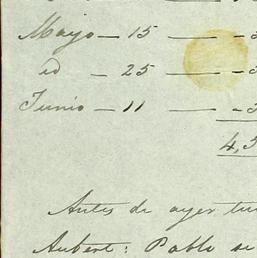 Mayo — 15 —— -3
id — 25 —— -3
Junio — 11 —— -3
4,5
Antes de ayer tu
Aubert: Pablo se